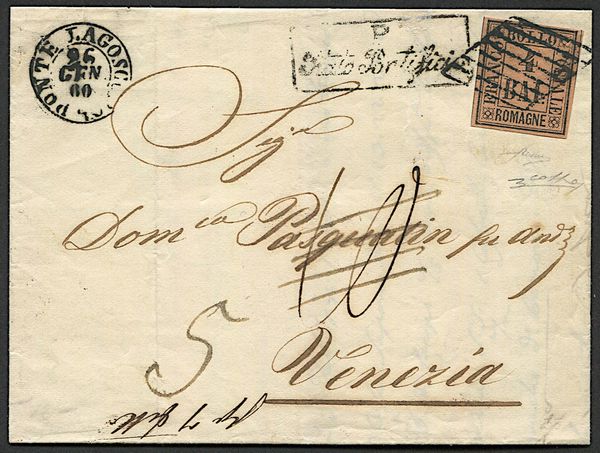 PONTE LAGOSCURO
26
GEN
60
P.
Stato Pontificio
FRANCO BOLLO POSTALE
4
BAJ
ROMAGNE
Sigr
Domca Pasqualin fu And
10
5
Venezia